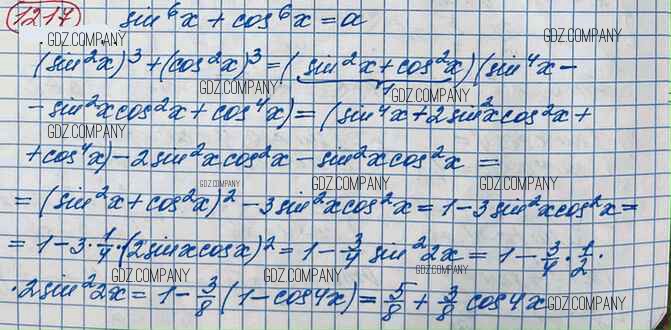 1217 sin⁶x + cos⁶x = a
GDZ.COMPANY GDZ.COMPANY GDZ.COMPANY
(sin²x)³ + (cos²x)³ = (sin²x + cos²x)(sin⁴x -
GDZ.COMPANY 1 GDZ.COMPANY
- sin²x cos²x + cos⁴x) = (sin⁴x + 2sin²x cos²x +
GDZ.COMPANY GDZ.COMPANY
+ cos⁴x) - 2sin²x cos²x - sin²x cos²x =
GDZ.COMPANY GDZ.COMPANY GDZ.COMPANY
= (sin²x + cos²x)² - 3sin²x cos²x = 1 - 3sin²x cos²x =
= 1 - 3 · 1/4 · (2sinx cosx)² = 1 - 3/4 sin²2x = 1 - 3/4 · 1/2 ·
GDZ.COMPANY GDZ.COMPANY GDZ.COMPANY
· 2sin²2x = 1 - 3/8 (1 - cos4x) = 5/8 + 3/8 cos4x
GDZ.COMPANY GDZ.COMPANY